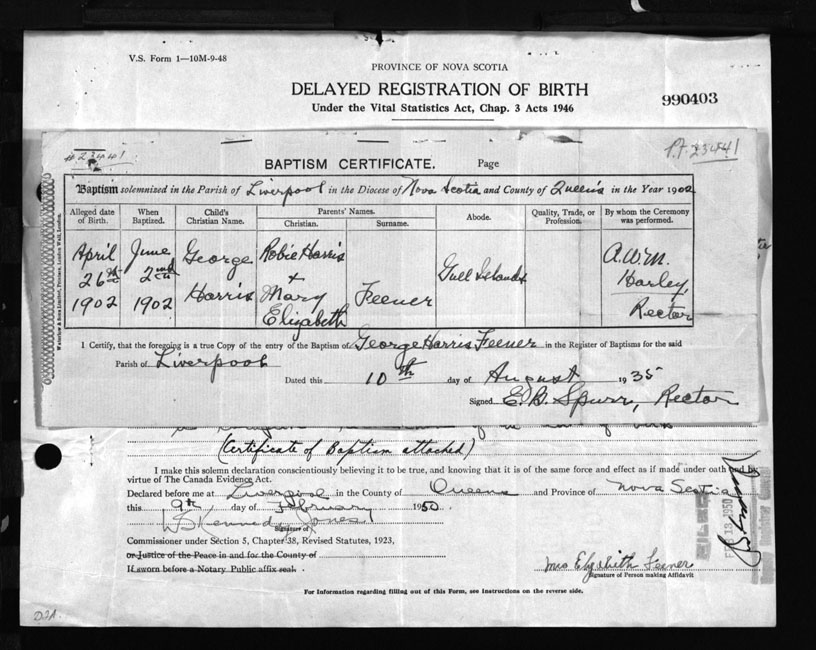 V.S. Form 1—10M-9-48
PROVINCE OF NOVA SCOTIA
DELAYED REGISTRATION OF BIRTH
Under the Vital Statistics Act, Chap. 3 Acts 1946
990403
#23441
Pt 23441
BAPTISM CERTIFICATE. Page
Baptism solemnized in the Parish of Liverpool in the Diocese of Nova Scotia and County of Queen's in the Year 1902
Alleged date of Birth. When Baptized. Child's Christian Name. Parents' Names. Christian. Surname. Abode. Quality, Trade, or Profession. By whom the Ceremony was performed.
April 26th 1902
June 2nd 1902
George Harris
Robie Harris
+
Mary Elizabeth
Feener
Gull Islands
A.W.M. Harley, Rector
Waterlow & Sons Limited, Printers, London Wall, London.
I Certify, that the foregoing is a true Copy of the entry of the Baptism of George Harris Feener in the Register of Baptisms for the said
Parish of Liverpool
Dated this 10th day of August 1935
Signed E. B. Spurr, Rector
(Certificate of Baptism attached)
I make this solemn declaration conscientiously believing it to be true, and knowing that it is of the same force and effect as if made under oath and by
virtue of The Canada Evidence Act.
Declared before me at Liverpool in the County of Queens and Province of Nova Scotia
this 9th day of February 1950.
W S Kennedy Jones
Signature of
Commissioner under Section 5, Chapter 38, Revised Statutes, 1923,
or Justice of the Peace in and for the County of
If sworn before a Notary Public affix seal.
FEB 18 1950
Mrs Elizabeth Feener
Signature of Person making Affidavit
For Information regarding filling out of this Form, see Instructions on the reverse side.